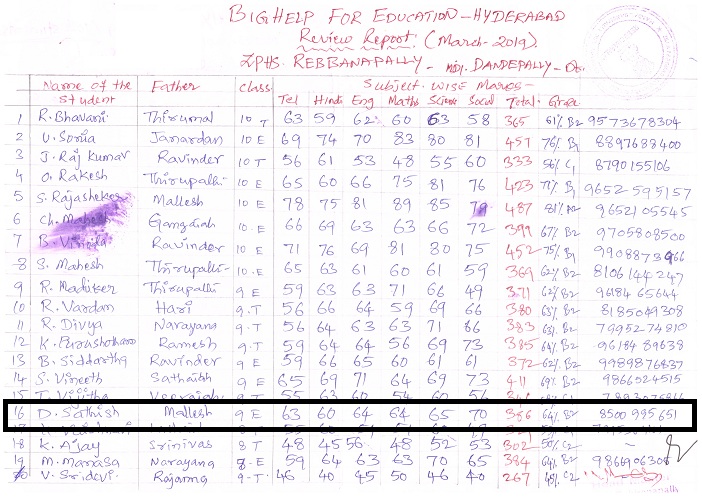 BIGHELP FOR EDUCATION - HYDERABAD
Review Report (March-2019)
ZPHS. REBBANAPALLY - Mdl. DANDEPALLY - Dt.
Name of the Student Father class Subject wise Marks -
Tel Hindi Eng Maths Science Social Total Grade
1 R. Bhavani Thirumal 10 T 63 59 62 60 63 58 365 61% B2 9573678304
2 V. Sonia Janardan 10 E 69 74 70 83 80 81 457 76% B1 8897688400
3 J. Raj Kumar Ravinder 10 T 56 61 53 48 55 60 333 56% C1 8790155106
4 O. Rakesh Thirupathi 10 E 65 60 66 75 81 76 423 71% B1 9652595157
5 S. Rajasheker Mallesh 10 E 78 75 81 89 85 79 487 81% A2 9652105545
6 Ch. Mahesh Gangaiah 10 E 66 69 63 63 66 72 399 67% B2 9705808500
7 B. Vinita Ravinder 10 E 71 76 69 81 80 75 452 75% B1 9908873966
8 S. Mahesh Thirupathi - 10.E 65 63 61 60 61 59 369 62% B2 8106144247
9 R. Madhker Thirupathi 9 E 59 63 63 71 66 49 371 62% B2 9618465644
10 R. Vardan Hari 9.T 56 66 64 59 69 66 380 63% B2 8185049308
11 R. Divya Narayana 9.T 56 64 63 63 71 86 383 63% B2 7995274810
12 K. Purushotham Ramesh 9.T 59 64 64 56 69 73 385 64% B2 9618489638
13 B. Siddartha Ravinder 9 E 59 66 65 60 61 61 372 62% B2 9989876837
14 S. Vineeth Sathaish 9 E 65 69 71 64 69 73 411 69% B2 9866024515
15 T.
16 D. Sathish Mallesh 9 E 63 60 64 64 65 70 386 64% B2 8500995651
18 K. Ajay Srinivas 8 T 48 45 56 48 52 53 302 50% C2 -
19 M. Manasa Narayana 8.E 59 64 63 63 70 65 384 64% B2 9866906308
20 V. Sridevi Rajanna 9-T 46 40 45 50 46 40 267 45% C2